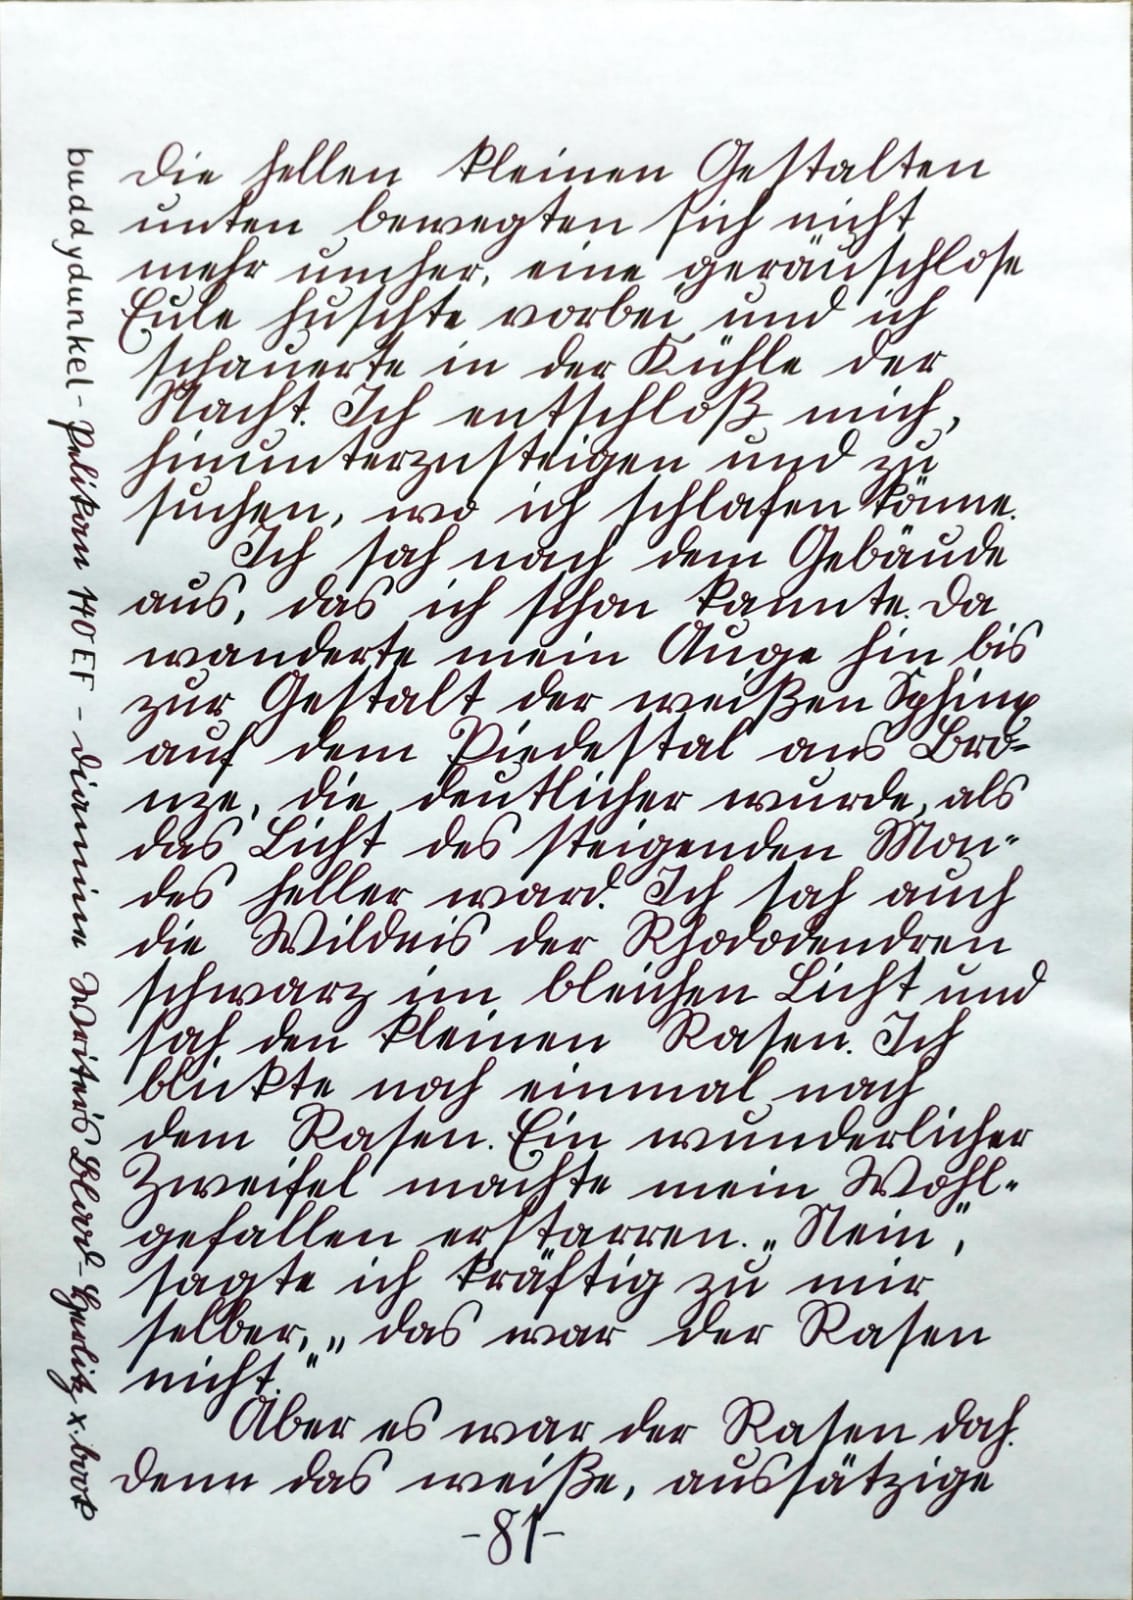 Die hellen kleinen Gestalten
unten bewegten sich nicht
mehr umher, eine geräuschlose
Eule huschte vorbei, und ich
schauerte in der Kühle der
Nacht. Ich entschloß mich,
hinunterzusteigen und zu
suchen, wo ich schlafen könne.
Ich sah nach dem Gebäude
aus, das ich schon kannte. Da
wanderte mein Auge hin bis
zur Gestalt der weißen Sphinx
auf dem Piedestal aus Bro-
nze, die deutlicher wurde, als
das Licht des steigenden Mon-
des heller ward. Ich sah auch
die Wildnis der Rhododendren
schwarz im bleichen Licht und
sah den kleinen Rasen. Ich
blickte noch einmal nach
dem Rasen. Ein wunderlicher
Zweifel machte mein Wohl-
gefallen erstarren. „Nein“,
sagte ich kräftig zu mir
selber, „das war der Rasen
nicht.“
Aber es war der Rasen doch.
Denn das weiße, aussätzige
-81-
buddydunkel - Pelikan 140 EF - diamine Writer's Blood - Herlitz x.book